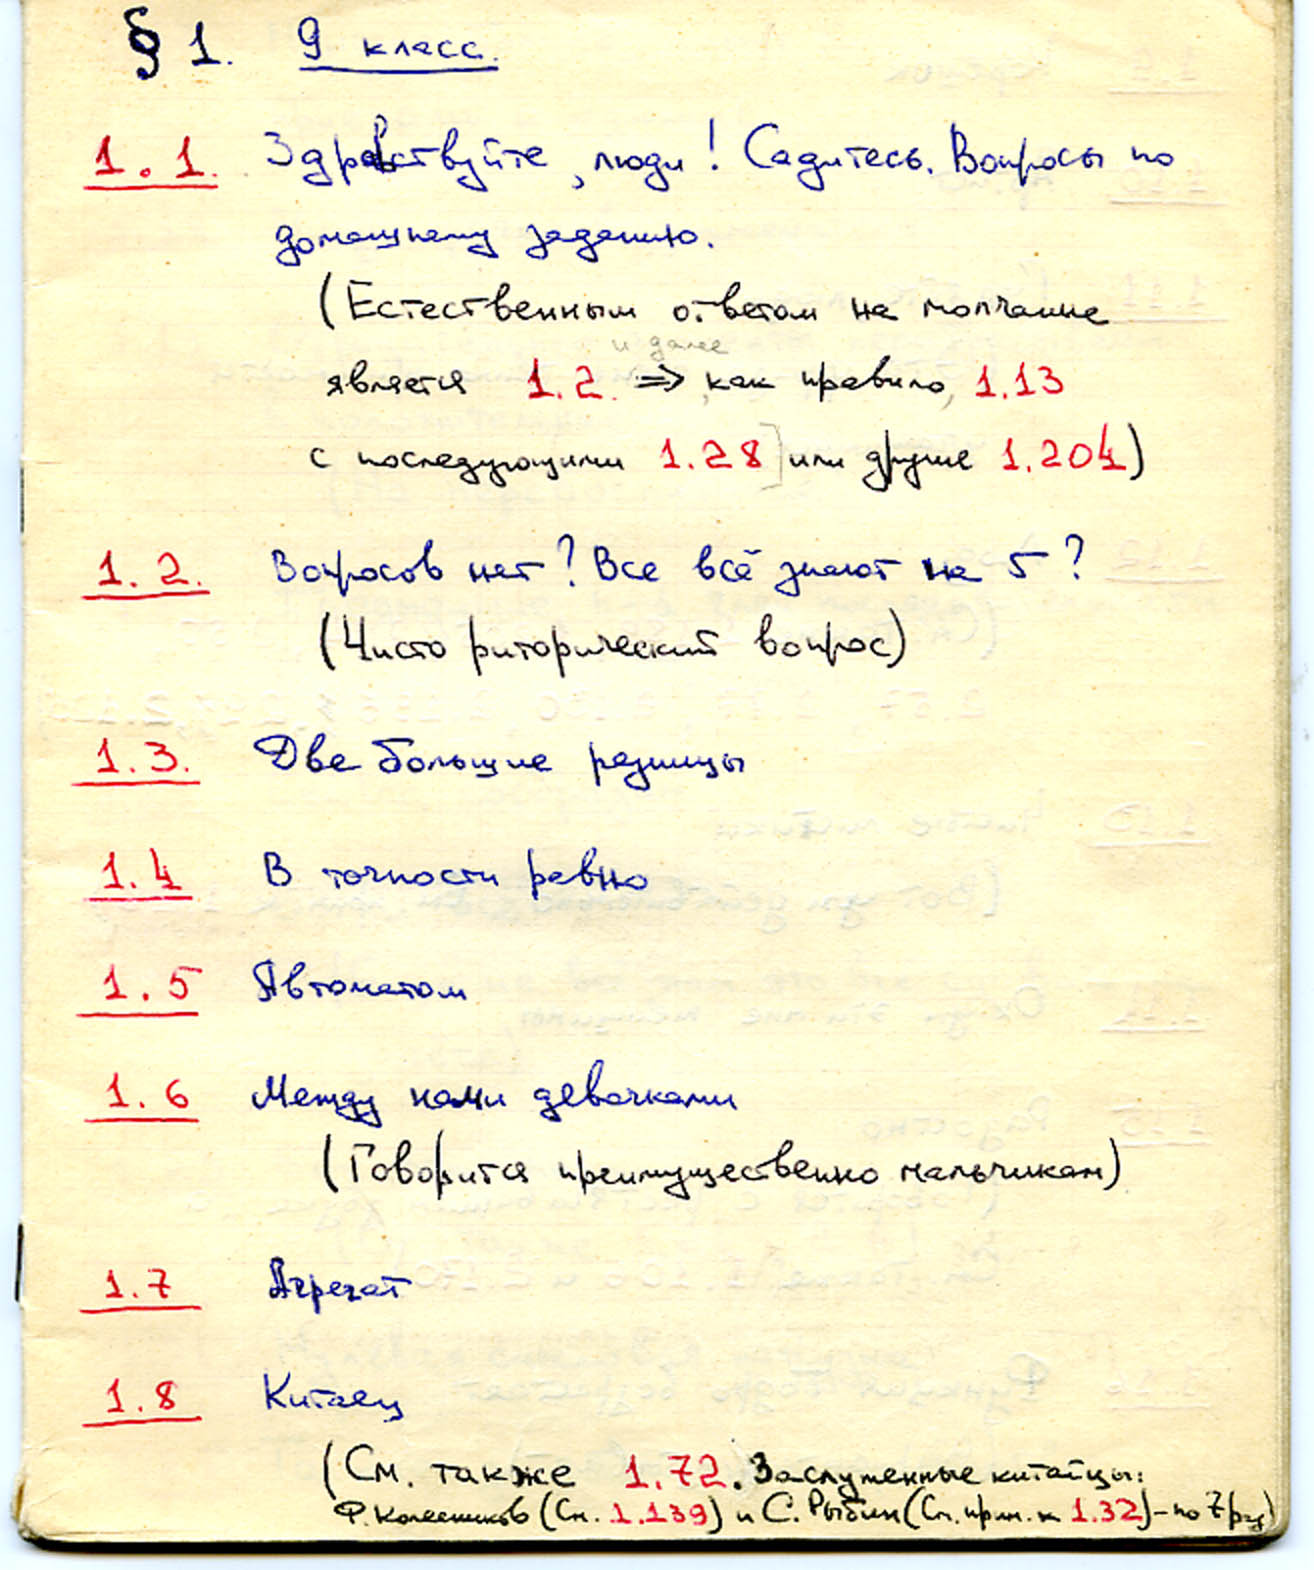 § 1. 9 класс.
1.1. Здравствуйте, люди! Садитесь. Вопросы по
домашнему заданию.
(Естественным ответом на молчание
и далее
является 1.2. ⇒, как правило, 1.13
с последующими 1.28] или другие 1.204)
1.2. Вопросов нет? Все всё знают на 5?
(Чисто риторический вопрос)
1.3. Две большие разницы
1.4 В точности равно
1.5 Автоматом
1.6 Между нами девочками
(Говорится преимущественно мальчикам)
1.7 Агрегат
1.8 Китаец
(См. также 1.72. Заслуженные китайцы:
Ф. Колесников (См. 1.139) и С. Рыбин (См. прим. к 1.32) - по 7 раз)